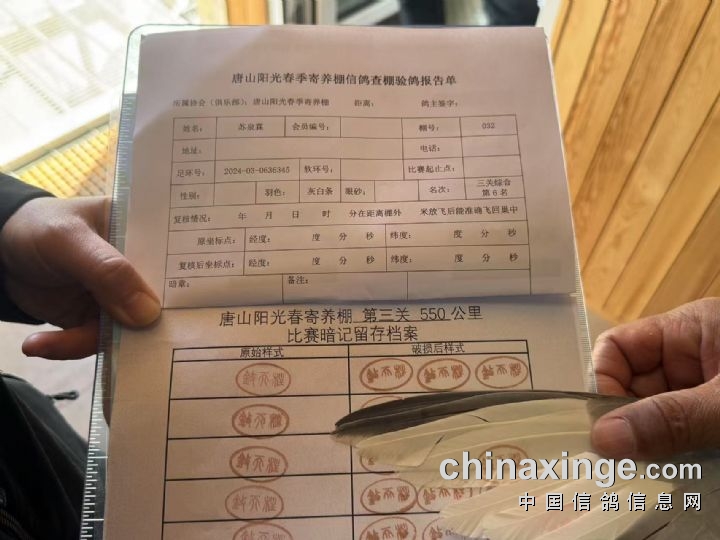 唐山阳光春季寄养棚信鸽查棚验鸽报告单
所属协会(俱乐部): 唐山阳光春季寄养棚 距离: 鸽主签字:
姓名: 苏泉霖 会员编号: 棚号: 032
地址: 电话:
足环号: 2024-03-0636345 软环号: 比赛起止点:
性别: 羽色: 灰白条 眼砂: 名次: 三关综合
第6名
复核情况: 年 月 日 时 分在距离棚外 米放飞后能准确飞回巢中
原坐标点: 经度: 度 分 秒 纬度: 度 分 秒
复核后坐标点: 经度: 度 分 秒 纬度: 度 分 秒
暗章: 备注:
唐山阳光春寄养棚 第三关 550公里
比赛暗记留存档案
原始样式 破损后样式
chinaxinge.com
中国信鸽信息网